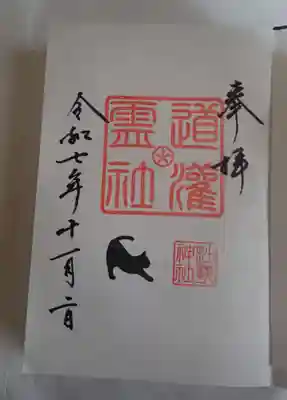 奉拝
道灌
霊社
神社
令和七年十一月二日